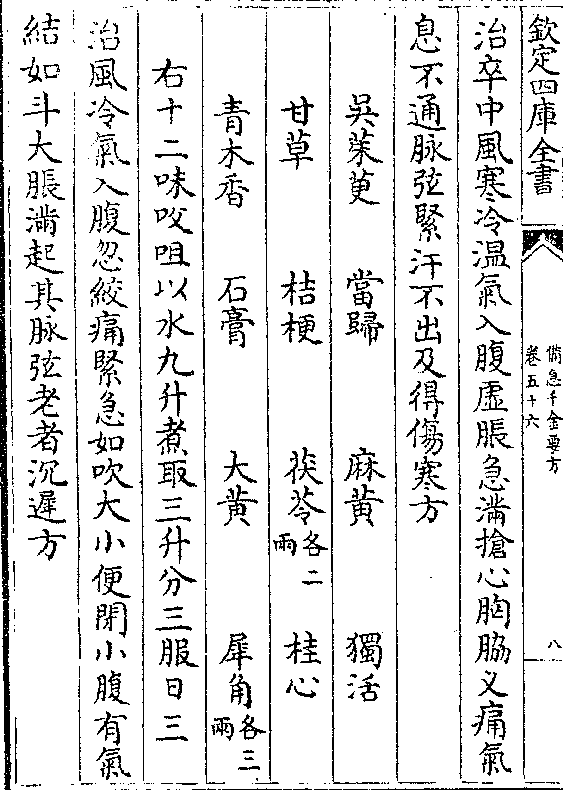 欽定四庫全書
備急千金要方
卷五十六
八
治卒中風寒冷温氣入腹虛脹急滿搶心胸脇叉痛氣
息不通脉弦緊汗不出及得傷寒方
吳茱萸 當歸 麻黄 獨活
甘草 桔梗 茯苓各二兩 桂心
青木香 石膏 大黄 犀角各三兩
右十二味㕮咀以水九升煮取三升分三服日三
治風冷氣入腹忽絞痛緊急如吹大小便閉小腹有氣
結如斗大脹滿起其脉弦老者沉遲方